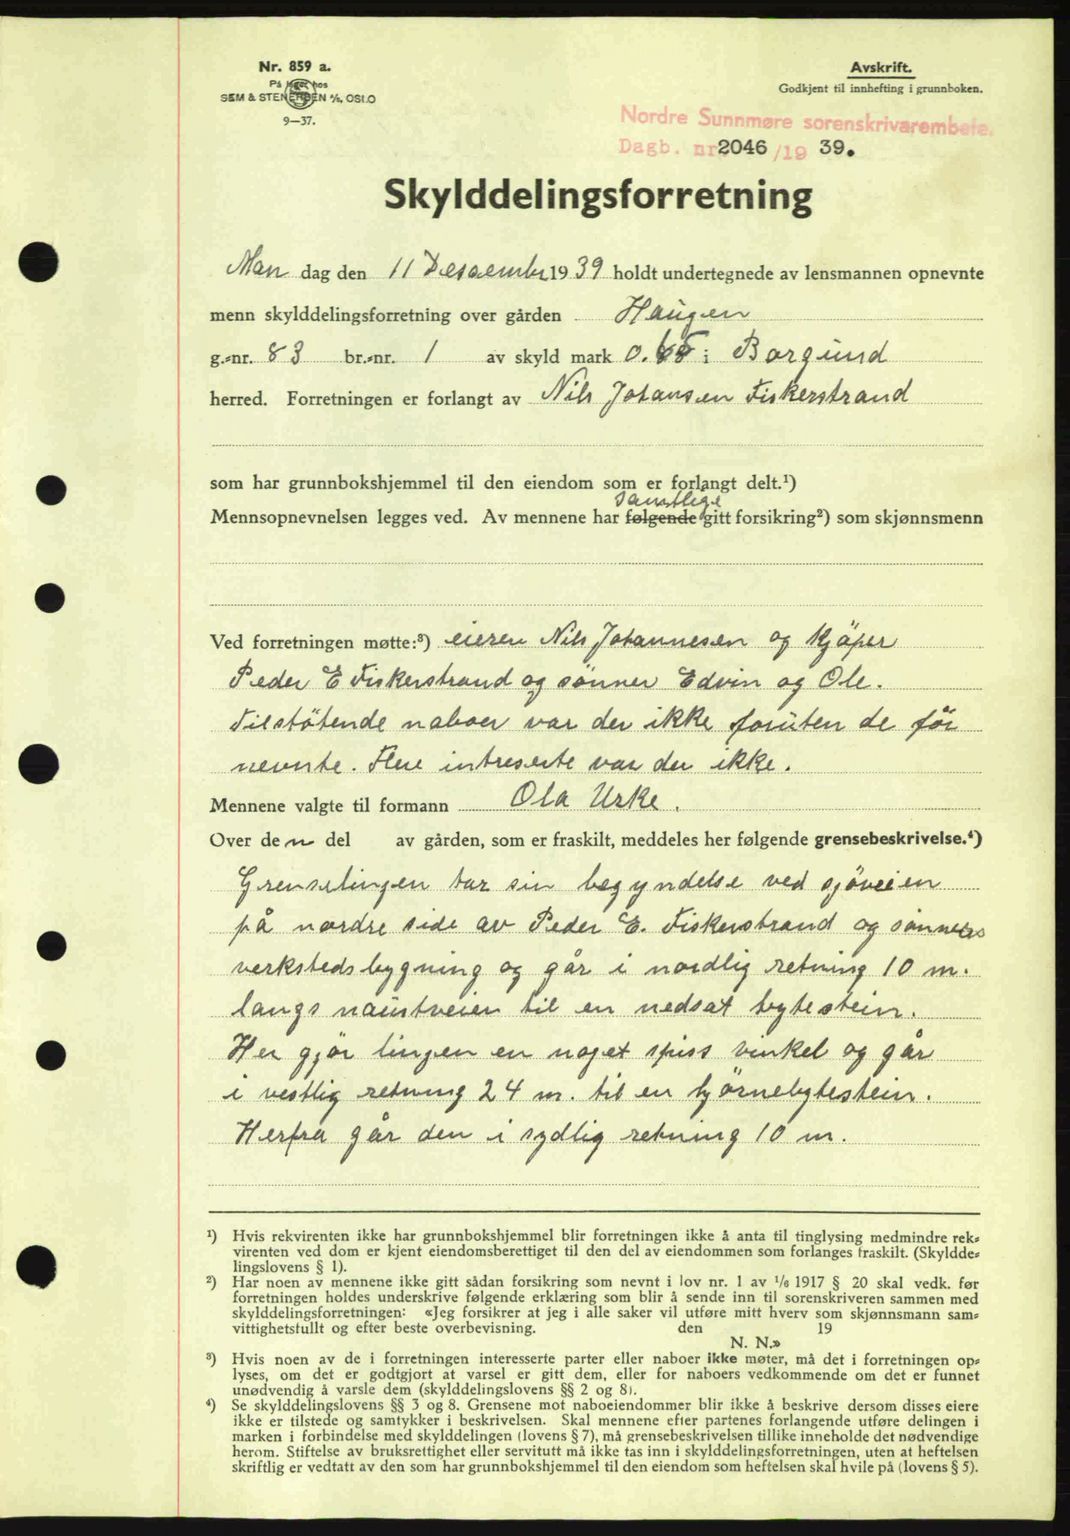 Nr. 859 a.
På lager hos
SEM & STENERSEN A/S, OSLO
9—37.
Avskrift.
Godkjent til innhefting i grunnboken.
Nordre Sunnmøre sorenskrivarembete.
Dagb. nr. 2046/19 39.
Skylddelingsforretning
Man dag den 11 Desaember 1939 holdt undertegnede av lensmannen opnevnte
menn skylddelingsforretning over gården Haugen
g.-nr. 83 br.-nr. 1 av skyld mark 0. i Borgund
herred. Forretningen er forlangt av Nils Johansen Fiskerstrand
som har grunnbokshjemmel til den eiendom som er forlangt delt.¹)
samtlige
Mennsopnevnelsen legges ved. Av mennene har følgende gitt forsikring²) som skjønnsmenn
Ved forretningen møtte:³) eieren Nils Johannesen og kjöper
Peder E Fiskerstrand og sønner Edvin og Ole.
Tilstötende naboer var der ikke foruten de før
nevnte. Flere intreserte var der ikke.
Mennene valgte til formann Ola Urke.
Over den del av gården, som er fraskilt, meddeles her følgende grensebeskrivelse.⁴)
Grenselingen tar sin begyndelse ved sjöveien
på nordre side av Peder E. Fiskerstrand og sønners
verkstedsbygning og går i nordlig retning 10 m.
langs naustveien til en nedsat bytestein.
Her gjör lingen en noget spiss vinkel og går
i vestlig retning 24 m. til en hjörnebytestein.
Herfra går den i sydlig retning 10 m.
¹) Hvis rekvirenten ikke har grunnbokshjemmel blir forretningen ikke å anta til tinglysing medmindre rek-
virenten ved dom er kjent eiendomsberettiget til den del av eiendommen som forlanges fraskilt. (Skyldde-
lingslovens § 1).
²) Har noen av mennene ikke gitt sådan forsikring som nevnt i lov nr. 1 av 1/6 1917 § 20 skal vedk. før
forretningen holdes underskrive følgende erklæring som blir å sende inn til sorenskriveren sammen med
skylddelingsforretningen: «Jeg forsikrer at jeg i alle saker vil utføre mitt hverv som skjønnsmann sam-
vittighetsfullt og efter beste overbevisning. den 19
N. N.»
³) Hvis noen av de i forretningen interesserte parter eller naboer ikke møter, må det i forretningen op-
lyses, om det er godtgjort at varsel er gitt dem, eller for naboers vedkommende om det er funnet
unødvendig å varsle dem (skylddelingslovens §§ 2 og 8).
⁴) Se skylddelingslovens §§ 3 og 8. Grensene mot naboeiendommer blir ikke å beskrive dersom disses eiere
ikke er tilstede og samtykker i beskrivelsen. Skal mennene efter partenes forlangende utføre delingen i
marken i forbindelse med skylddelingen (lovens § 7), må grensebeskrivelsen tillike inneholde det nødvendige
herom. Stiftelse av bruksrettighet eller servitutt må ikke tas inn i skylddelingsforretningen, uten at heftelsen
skriftlig er vedtatt av den som har grunnbokshjemmel til den eiendom som heftelsen skal hvile på (lovens § 5).